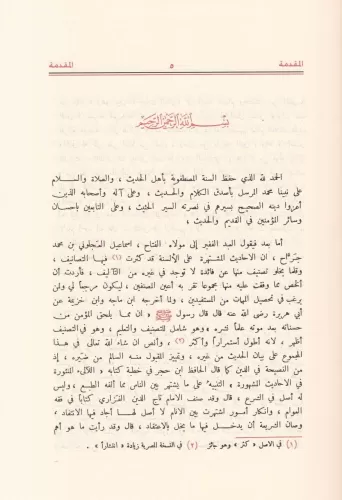 المقدمة ٥ المقدمة
بسم الله الرحمن الرحيم
الحمد لله الذي حفظ السنة المصطفوية بأهل الحديث ، والصلاة والسلام
على نبينا محمد المرسل بأصدق الكلام والحديث ، وعلى آله وأصحابه الذين
أعزوا دينه الصحيح بسيرهم في نصرته السير الحثيث ، وعلى التابعين بإحسان
وسائر المؤمنين في القديم والحديث ،
أما بعد فيقول العبد الفقير إلى مولاه الفتاح ، اسماعيل العجلوني بن محمد
جراح ، ان الاحاديث المشتهرة على الألسنة قد كثرت (١) فيها التصانيف ،
وقلما يخلو تصنيف منها عن فائدة لا توجد في غيره من التآليف ، فأردت أن
ألخص مما وقفت عليه منها مجموعا تقر به أعين المصنفين ، ليكون مرجعاً لي ولمن
يرغب في تحصيل المهمات من المستفيدين ، ولما أخرجه ابن ماجه وابن خزيمة عن
أبي هريرة رضي الله عنه قال قال رسول ﷺ « ان مما يلحق المؤمن من
حسناته بعد موته علماً نشره » وهو شامل للتصنيف والتعليم ، وهو في التصنيف
أظهر ، لأنه أطول استمراراً وأكثر (٢) ، وأنص ان شاء الله تعالى في هذا
المجموع على بيان الحديث من غيره ، وتمييز المقبول منه السالم من ضيره ، إذ
من النصيحة في الدين كما قال الحافظ ابن حجر في خطبة كتابه « اللآلئ المنثورة
في الاحاديث المشهورة » التنبيه على ما يشتهر بين الناس مما ألفه الطبع ، وليس
له أصل في الشرع ، قال وقد صنف الامام تاج الدين الفزاري كتاباً في فقه
العوام ، وانكار أمور اشتهرت بين الانام لا أصل لها أجاد فيها الانتقاد ،
وصان الشريعة أن يدخل فيها ما يخل بالاعتقاد ، قال وقد رأيت ما هو أهم
(١) في الاصل « كثر » وهو جائز (٢) في النسخة المصرية زيادة « انتشاراً » .